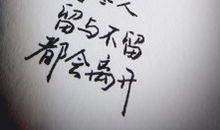 人
留与不留
都会离开